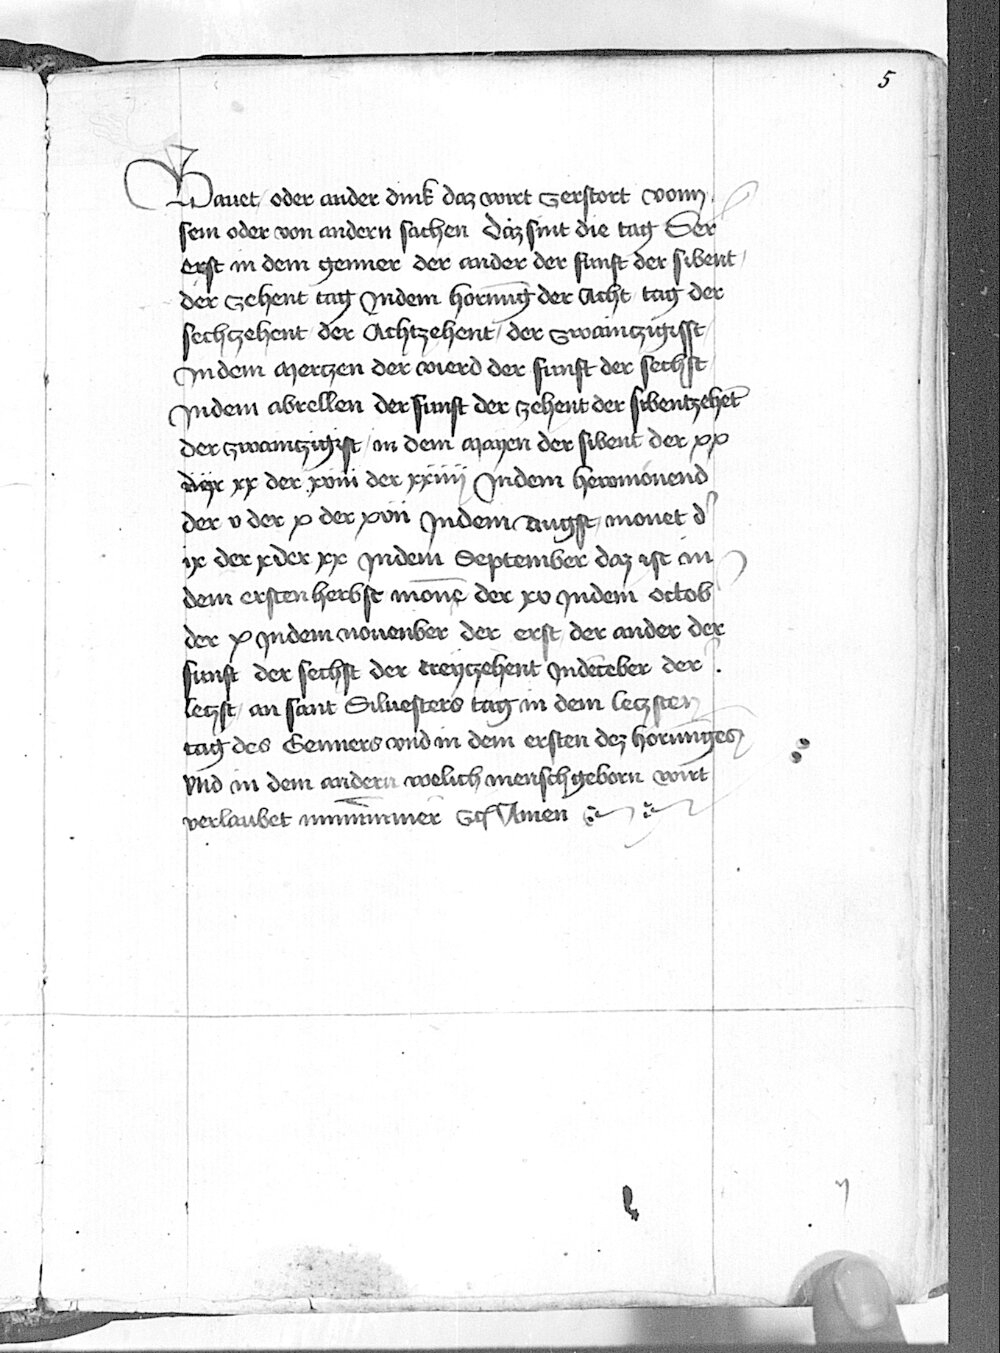 5
Bauet oder ander dink daz wirt zerstort vom
sein oder von andern sachen Daz sint die tag Der
erst in dem genner der ander der funft der sibent
der zehent tag Jn dem hornung der Acht tag der
sechzehent der Achtzehent der zwaintzigisst
Jn dem Mertzen der vierd der funft der sechst
Jn dem abrellen der funft der zehent der sibentzehet
der zwaintzigist in dem Mayen der sibent der xx
xx der xviii der xxiiij Jn dem hewmonend
der v der x der xvii Jn dem augst monet d
ix der x der xx Jn dem September daz ist in
dem ersten herbst mone der xv Jn dem octob
der x Jn dem nouenber der erst der ander der
funft der sechst der dreytzehent Jn deceber der
letzst an sant Siluesters tag in dem letzsten
tag des Genners vnd in dem ersten dez hornunges
Vnd in dem andern welich mensch geborn wirt
verlaubet nimmer Amen